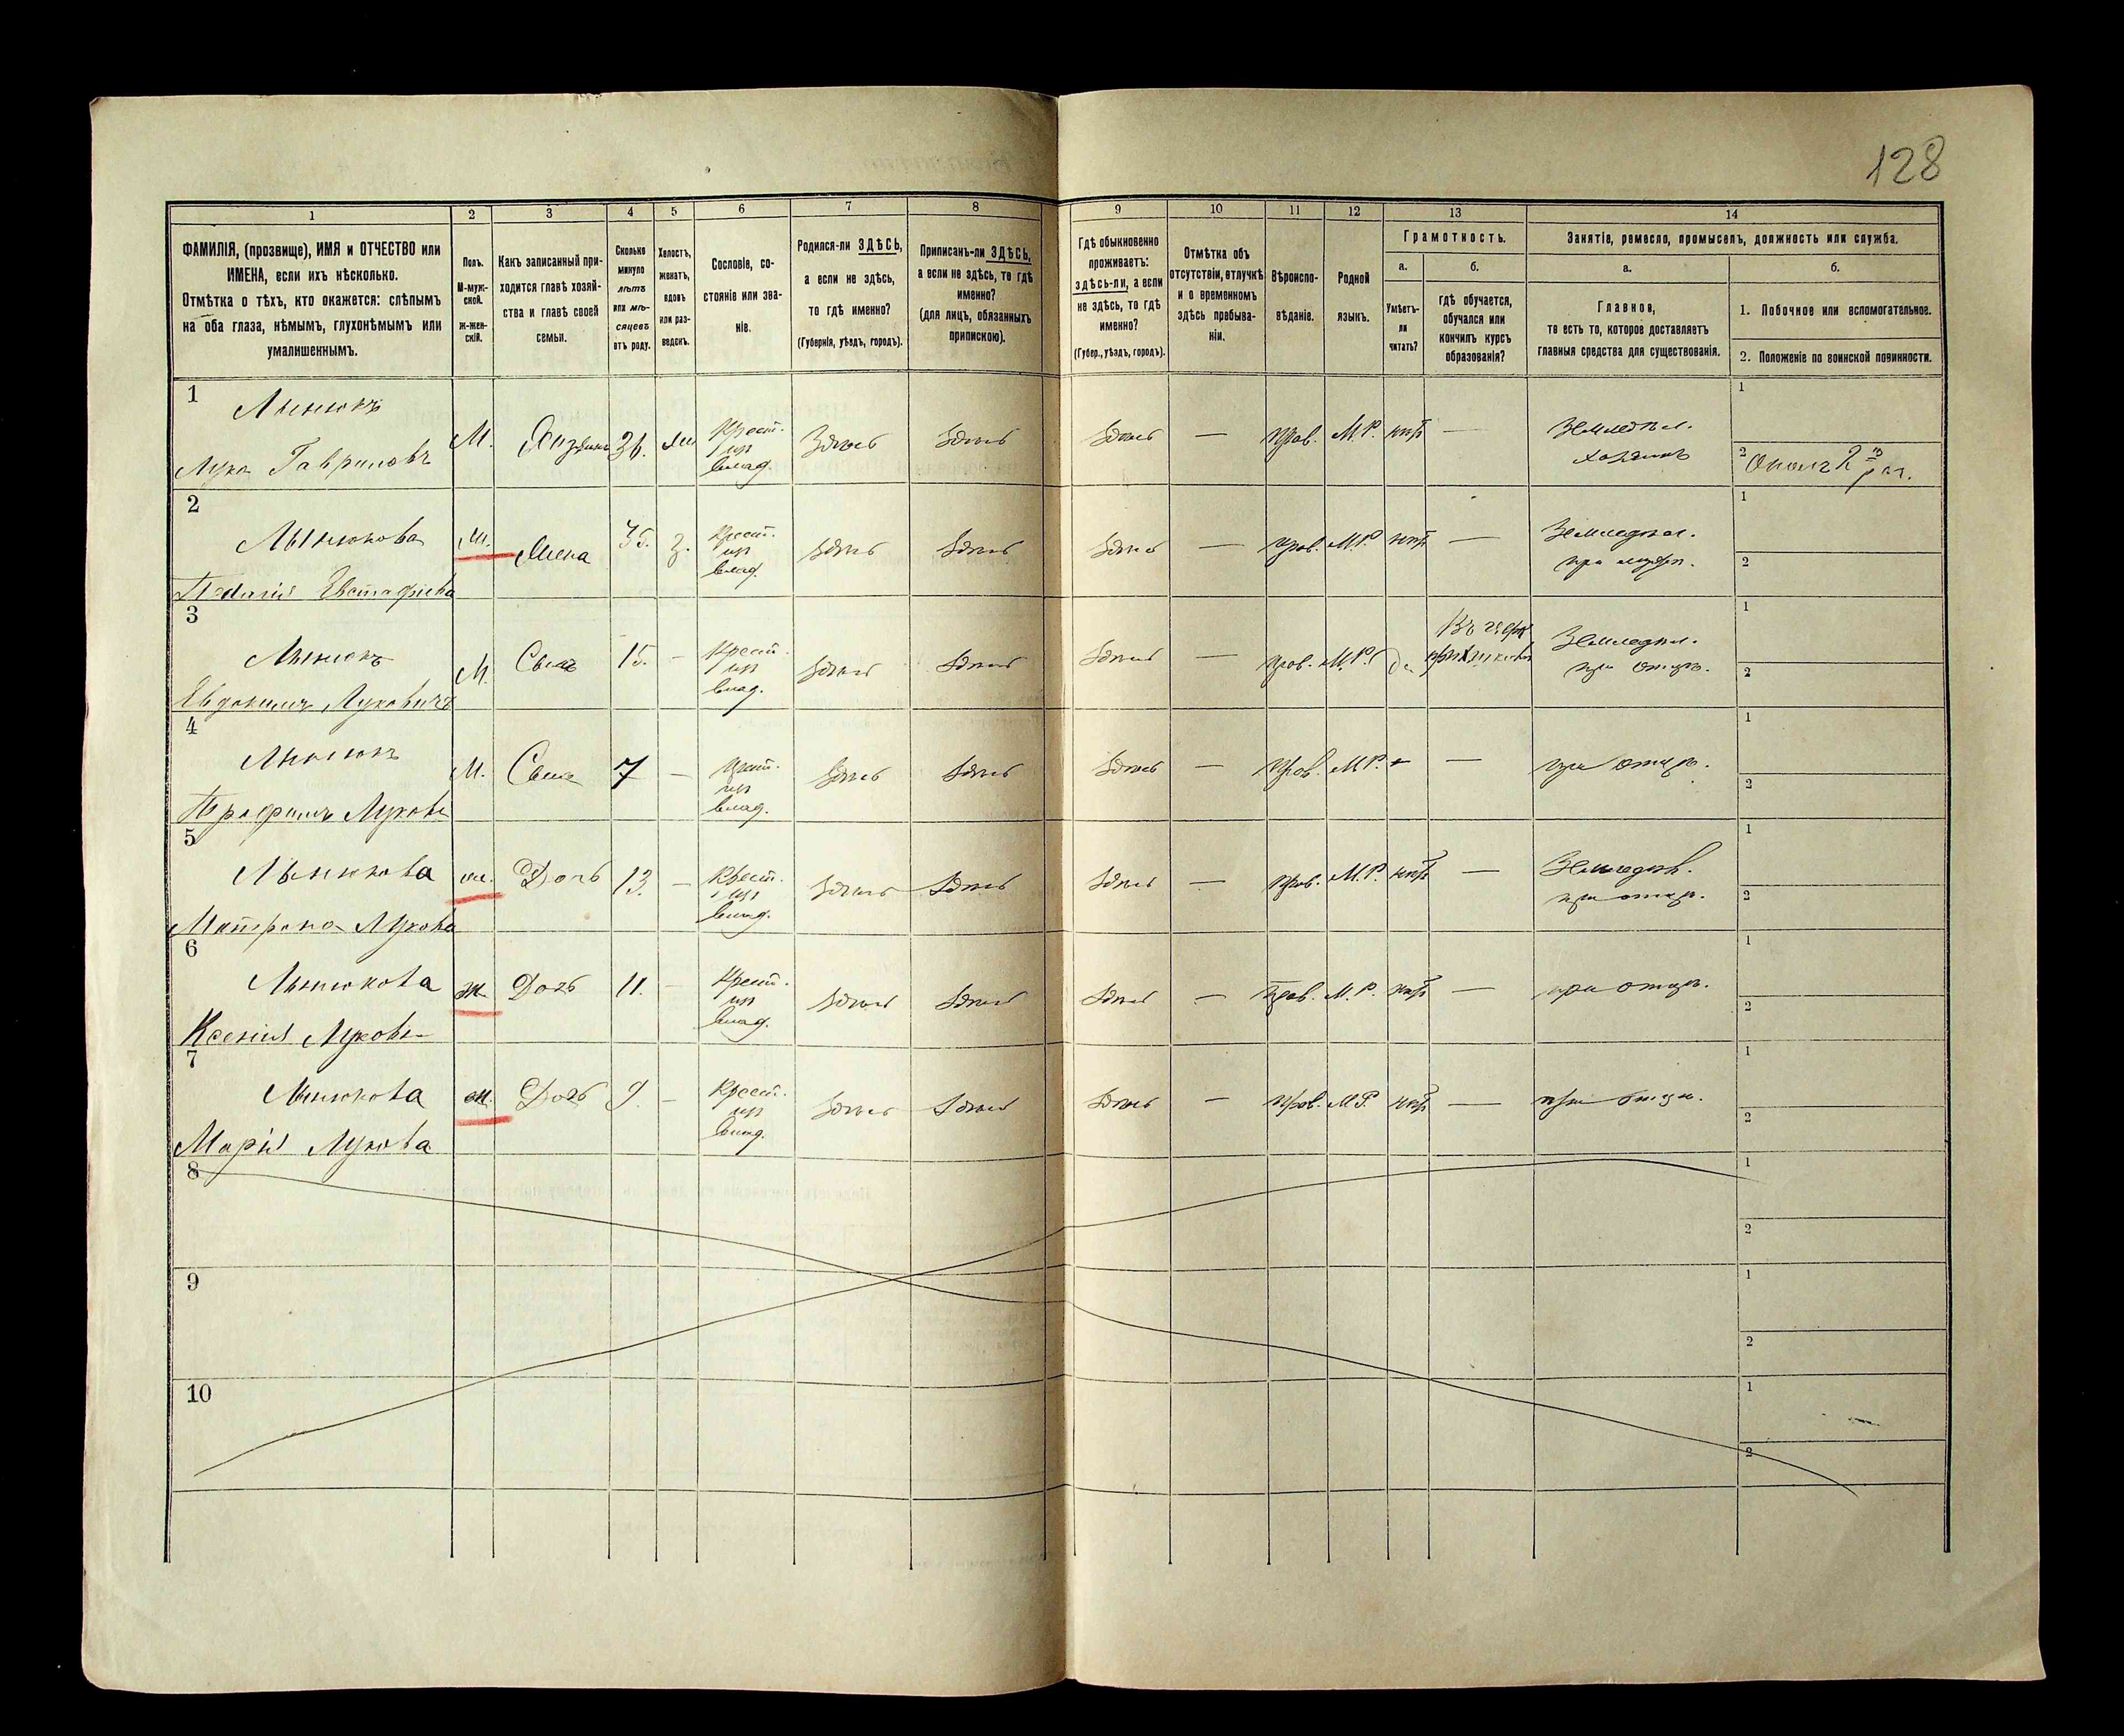 128
1 2 3 4 5 6 7 8 9 10 11 12 13 14
ФАМИЛІЯ, (прозвище), ИМЯ и ОТЧЕСТВО или
ИМЕНА, если ихъ нѣсколько.
Отмѣтка о тѣхъ, кто окажется: слѣпымъ
на оба глаза, нѣмымъ, глухонѣмымъ или
умалишеннымъ.
Полъ.
М-муж-
ской.
Ж-жен-
скій.
Какъ записанный при-
ходится главѣ хозяй-
ства и главѣ своей
семьи.
Сколько
минуло
лѣтъ
или мѣ-
сяцевъ
отъ роду.
Холостъ,
женатъ,
вдовъ
или раз-
веденъ.
Сословіе, со-
стояніе или зва-
ніе.
Родился-ли ЗДѢСЬ,
а если не здѣсь,
то гдѣ именно?
(Губернія, уѣздъ, городъ).
Приписанъ-ли ЗДѢСЬ,
а если не здѣсь, то гдѣ
именно?
(для лицъ, обязанныхъ
припискою).
Гдѣ обыкновенно
проживаетъ:
ЗДѢСЬ-ли, а если
не здѣсь, то гдѣ
именно?
(Губер., уѣздъ, городъ).
Отмѣтка объ
отсутствіи, отлучкѣ
и о временномъ
здѣсь пребыва-
ніи.
Вѣроиспо-
вѣданіе.
Родной
языкъ.
Грамотность.
а.
Умѣетъ-
ли
читать?
б.
гдѣ обучается,
обучался или
кончилъ курсъ
образованія?
Занятіе, ремесло, промыселъ, должность или служба.
а.
Главное,
то есть то, которое доставляетъ
главныя средства для существованія.
б.
1. Побочное или вспомогательное.
2. Положеніе по воинской повинности.
1
Лука Гавриловъ
М. Хозяинъ 36.
Крест.
из
влад.
Здѣсь Здѣсь Здѣсь — Прав. М.Р. нѣтъ —
Земледѣл.
хозяинъ
1
2
2
Лынюкова
Евстафіева
Жена 35. З.
Крест.
из
влад.
Здѣсь Здѣсь Здѣсь — Прав. М.Р. нѣтъ —
Земледѣл.
при мужѣ.
1
2
3
Лынюкъ
Евдокимъ Луковичъ
М. Сынъ 15. —
Крест.
из
влад.
Здѣсь Здѣсь Здѣсь — Прав. М.Р. да
Земледѣл.
при отцѣ.
1
2
4
Лынюкъ
Трофимъ Луковъ
М. Сынъ 7 —
Крест.
из
влад.
Здѣсь Здѣсь Здѣсь — Прав. М.Р. —
при отцѣ.
1
2
5
Лынюкова
Матрона Лукова
ж. Дочь 13. —
Крест.
из
влад.
Здѣсь Здѣсь Здѣсь — Прав. М.Р. нѣтъ —
Земледѣл.
при отцѣ.
1
2
6
Лынюкова
Ксенія Лукова
ж. Дочь 11. —
Крест.
из
влад.
Здѣсь Здѣсь Здѣсь — Прав. М.Р. нѣтъ —
при отцѣ.
1
2
7
Лынюкова
Марія Лукова
ж. Дочь 9. —
Крест.
из
влад.
Здѣсь Здѣсь Здѣсь — Прав. М.Р. нѣтъ —
при отцѣ.
1
2
8
1
2
9
1
2
10
1
2